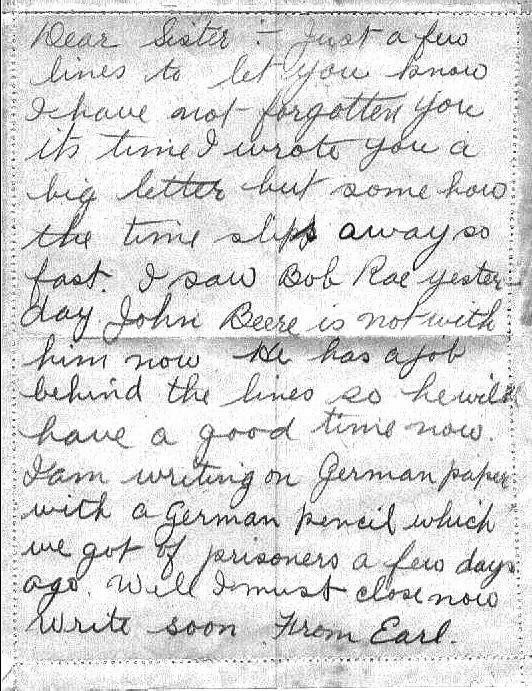 Dear Sister :- Just a few
lines to let you know
I have not forgotten you
its time I wrote you a
big letter but some how
the time slips away so
fast. I saw Bob Rae yester-
day John Beere is not with
him now He has a job
behind the lines so he will
have a good time now.
I am writing on German paper
with a German pencil which
we got of prisoners a few days
ago. Well I must close now
Write soon From Earl.